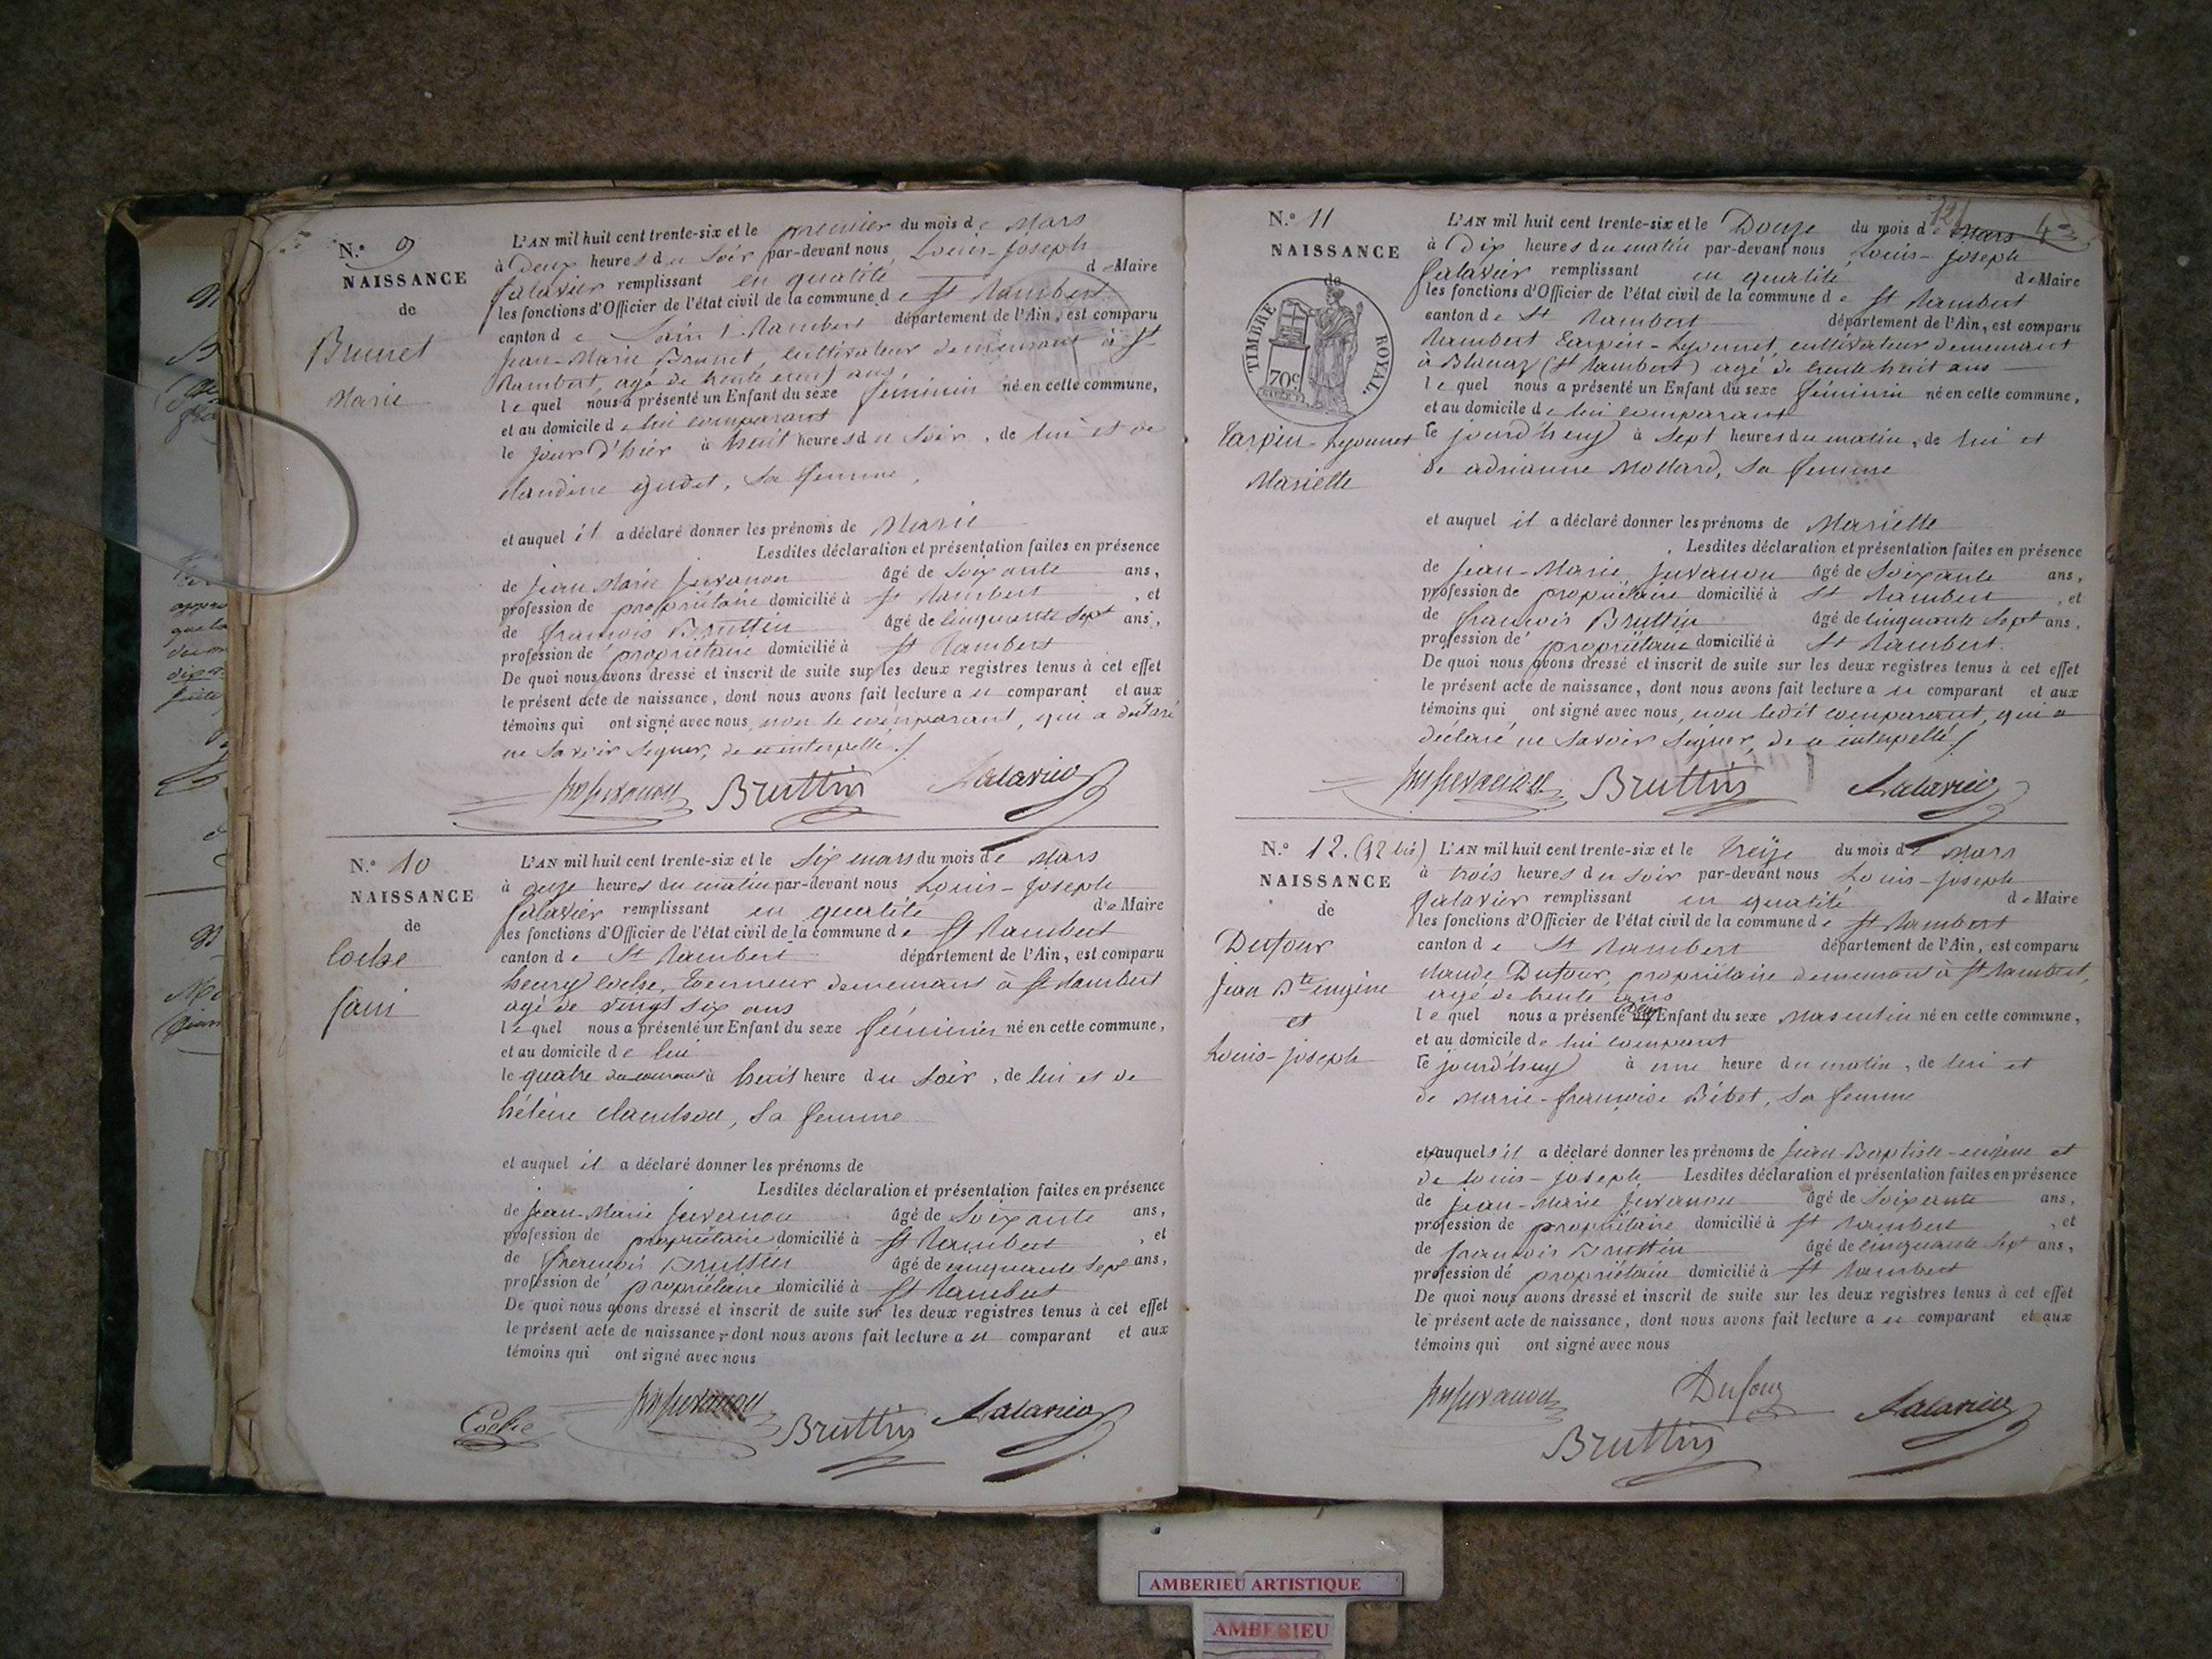 N.° 9
NAISSANCE
de
Brunet
Marie
L'AN mil huit cent trente-six et le premier du mois de Mars
à Deux heures du Soir par-devant nous, Louis-Joseph
Falavier remplissant en qualité de Maire
les fonctions d'Officier de l'état civil de la commune de St Rambert
canton de Saint Rambert département de l'Ain, est comparu
Jean-Marie Brunet, cultivateur demeurant à St
Rambert, agé de trente neuf ans,
lequel nous a présenté un Enfant du sexe féminin né en cette commune,
et au domicile de lui comparant
le jour d'hier à huit heures du Soir, de lui et de
claudine gudet, sa femme,
et auquel il a déclaré donner les prénoms de Marie
Lesdites déclaration et présentation faites en présence
de Jean Marie Juvanon âgé de Soixante ans,
profession de propriétaire domicilié à St Rambert, et
de françois Bruttin âgé de cinquante Sept ans,
profession de propriétaire domicilié à St Rambert
De quoi nous avons dressé et inscrit de suite sur les deux registres tenus à cet effet
le présent acte de naissance, dont nous avons fait lecture au comparant et aux
témoins qui ont signé avec nous, non le comparant, qui a déclaré
ne Savoir Signer, de ce interpellé
Bruttin
N.° 10
NAISSANCE
de
Coche
fani
L'AN mil huit cent trente-six et le Six mars du mois de Mars
à onze heures du matin par-devant nous Louis-Joseph
Falavier remplissant en qualité de Maire
les fonctions d'Officier de l'état civil de la commune de St Rambert
canton de St Rambert département de l'Ain, est comparu
henry Coche, Tourneur demeurant à St Rambert
agé de vingt Six ans
lequel nous a présenté un Enfant du sexe féminin né en cette commune,
et au domicile de lui
le quatre du courant à huit heure du Soir, de lui et de
hélène, Sa femme
et auquel il a déclaré donner les prénoms de
Lesdites déclaration et présentation faites en présence
de Jean-Marie Juvanon âgé de Soixante ans,
profession de propriétaire domicilié à St Rambert, et
de françois Bruttin âgé de cinquante Sept ans,
profession de propriétaire domicilié à St Rambert
De quoi nous avons dressé et inscrit de suite sur les deux registres tenus à cet effet
le présent acte de naissance, dont nous avons fait lecture au comparant et aux
témoins qui ont signé avec nous
Coche
Bruttin
N.° 11
NAISSANCE
de
TIMBRE ROYAL.
70c
Tarpin-Leyonnet
Mariette
L'AN mil huit cent trente-six et le Douze du mois de Mars
à Dix heures du matin par-devant nous Louis-Joseph
Falavier remplissant en qualité de Maire
les fonctions d'Officier de l'état civil de la commune de St Rambert
canton de St Rambert département de l'Ain, est comparu
Rambert Tarpin-Leyonnet, cultivateur demeurant
à Blanaz (St Rambert) agé de trente huit ans
lequel nous a présenté un Enfant du sexe féminin né en cette commune,
et au domicile de lui comparant
le jourd'huy à Sept heures du matin, de lui et
de adrianne Mollard, Sa femme
et auquel il a déclaré donner les prénoms de Mariette
Lesdites déclaration et présentation faites en présence
de Jean-Marie Juvanon âgé de Soixante ans,
profession de propriétaire domicilié à St Rambert, et
de françois Bruttin âgé de cinquante Sept ans,
profession de propriétaire domicilié à St Rambert.
De quoi nous avons dressé et inscrit de suite sur les deux registres tenus à cet effet
le présent acte de naissance, dont nous avons fait lecture au comparant et aux
témoins qui ont signé avec nous, non ledit comparant, qui a
déclaré ne Savoir Signer, de ce interpellé
Bruttin
N.° 12. (12 bis)
NAISSANCE
de
Dufour
Jean Bte eugène
et
Louis-joseph
L'AN mil huit cent trente-six et le treize du mois de Mars
à trois heures du Soir par-devant nous Louis-Joseph
Falavier remplissant en qualité de Maire
les fonctions d'Officier de l'état civil de la commune de St Rambert
canton de St Rambert département de l'Ain, est comparu
claude Dufour, propriétaire demeurant à St Rambert,
agé de trente ans
lequel nous a présenté deux Enfant du sexe Masculin né en cette commune,
et au domicile de lui comparant
le jourd'huy à une heure du matin, de lui et
de Marie-françoise Bébet, Sa femme
et auquels il a déclaré donner les prénoms de Jean-Baptiste-eugène et
de Louis-Joseph Lesdites déclaration et présentation faites en présence
de Jean-Marie Juvanon âgé de Soixante ans,
profession de propriétaire domicilié à St Rambert, et
de françois Bruttin âgé de cinquante Sept ans,
profession de propriétaire domicilié à St Rambert
De quoi nous avons dressé et inscrit de suite sur les deux registres tenus à cet effet
le présent acte de naissance, dont nous avons fait lecture au comparant et aux
témoins qui ont signé avec nous
Dufour
Bruttin
AMBERIEU ARTISTIQUE
AMBERIEU